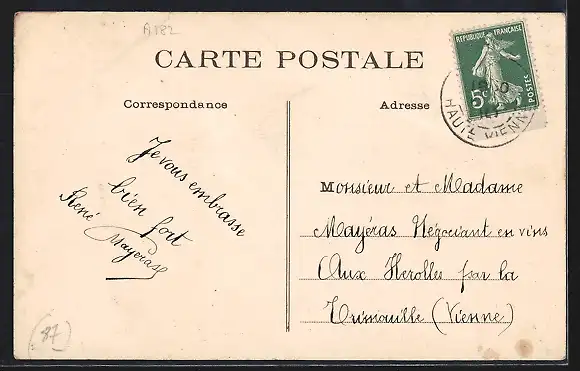 A882
CARTE POSTALE
Correspondance
Adresse
RÉPUBLIQUE FRANÇAISE
5c
POSTES
HAUTE VIENNE
Je vous embrasse
bien fort
René
Mayéras
Monsieur et Madame
Mayéras Négociant en vins
Aux Herolles par la
Trimouille (Vienne)
(87)